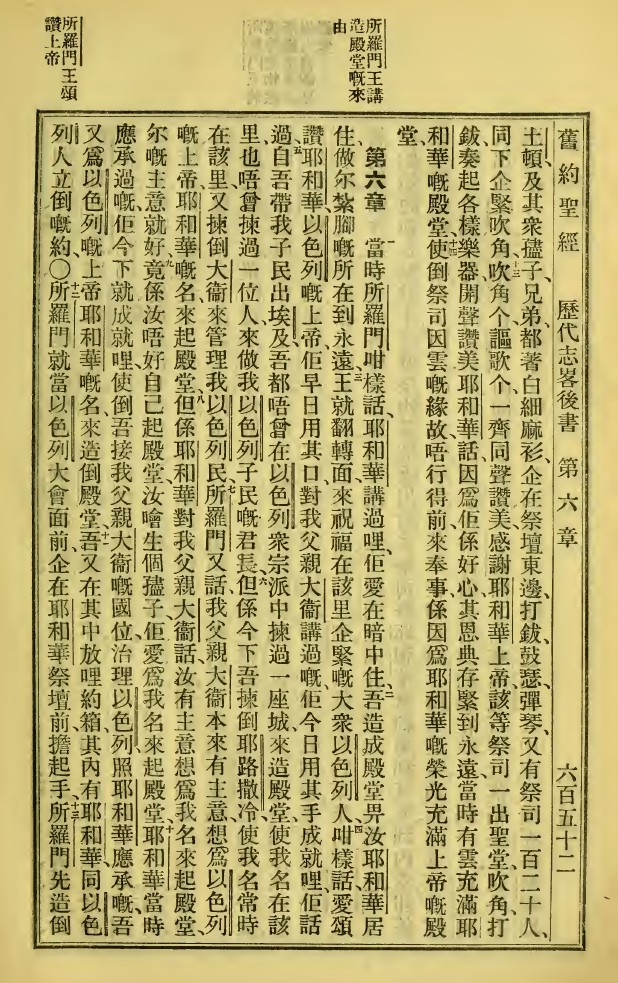 所羅門王講
造殿堂嘅來
由
所羅門王頌
讚上帝
舊約聖經 歷代志畧後書 第六章 六百五十二
土頓、及其衆孻子兄弟、都著白細麻衫、企在祭壇東邊、打鈸鼓瑟彈琴、又有祭司一百二十人、
同下企緊吹角、十三吹角个謳歌个、一齊同聲讚美感謝耶和華上帝、該等祭司一出聖堂、吹角、打
鈸、奏起各樣樂器、開聲讚美耶和華話、因爲佢係好心、其恩典存緊到永遠、當時有雲充滿耶
和華嘅殿堂、十四使倒祭司因雲嘅緣故、唔行得前來奉事、係因爲耶和華嘅榮光充滿上帝嘅殿
堂、
第六章 一當時所羅門咁樣話、耶和華講過哩、佢愛在暗中住、二吾造成殿堂畀汝耶和華居
住、做尔紮脚嘅所在到永遠、三王就翻轉面來、祝福在該里企緊嘅大衆以色列人、四咁樣話、愛頌
讚耶和華以色列嘅上帝、佢早日用其口對我父親大衞講過嘅、佢今日用其手成就哩、佢話、
過五自吾帶我子民出埃及、吾都唔曾在以色列衆宗派中揀過一座城、來造殿堂、使我名在該
里、也唔曾揀過一位人來做我以色列子民嘅君長、六但係今下吾揀倒耶路撒冷、使我名常時
在該里、又揀倒大衞來管理我以色列民、七所羅門又話、我父親大衞本來有主意、想爲以色列
嘅上帝耶和華嘅名來起殿堂、八但係耶和華對我父親大衞話、汝有主意想爲我名來起殿堂、
尔嘅主意就好、九竟係汝唔好自己起殿堂、汝噲生個孻子、佢愛爲我名來起殿堂、十耶和華當時
應承過嘅、佢今下就成就哩、使倒吾接我父親大衞嘅國位、治理以色列、照耶和華應承嘅、吾
又爲以色列嘅上帝耶和華嘅名來造倒殿堂、十一吾又在其中放哩約箱、其內有耶和華同以色
列人立倒嘅約、〇十二所羅門就當以色列大會面前、企在耶和華祭壇前、擔起手、十三所羅門先造倒